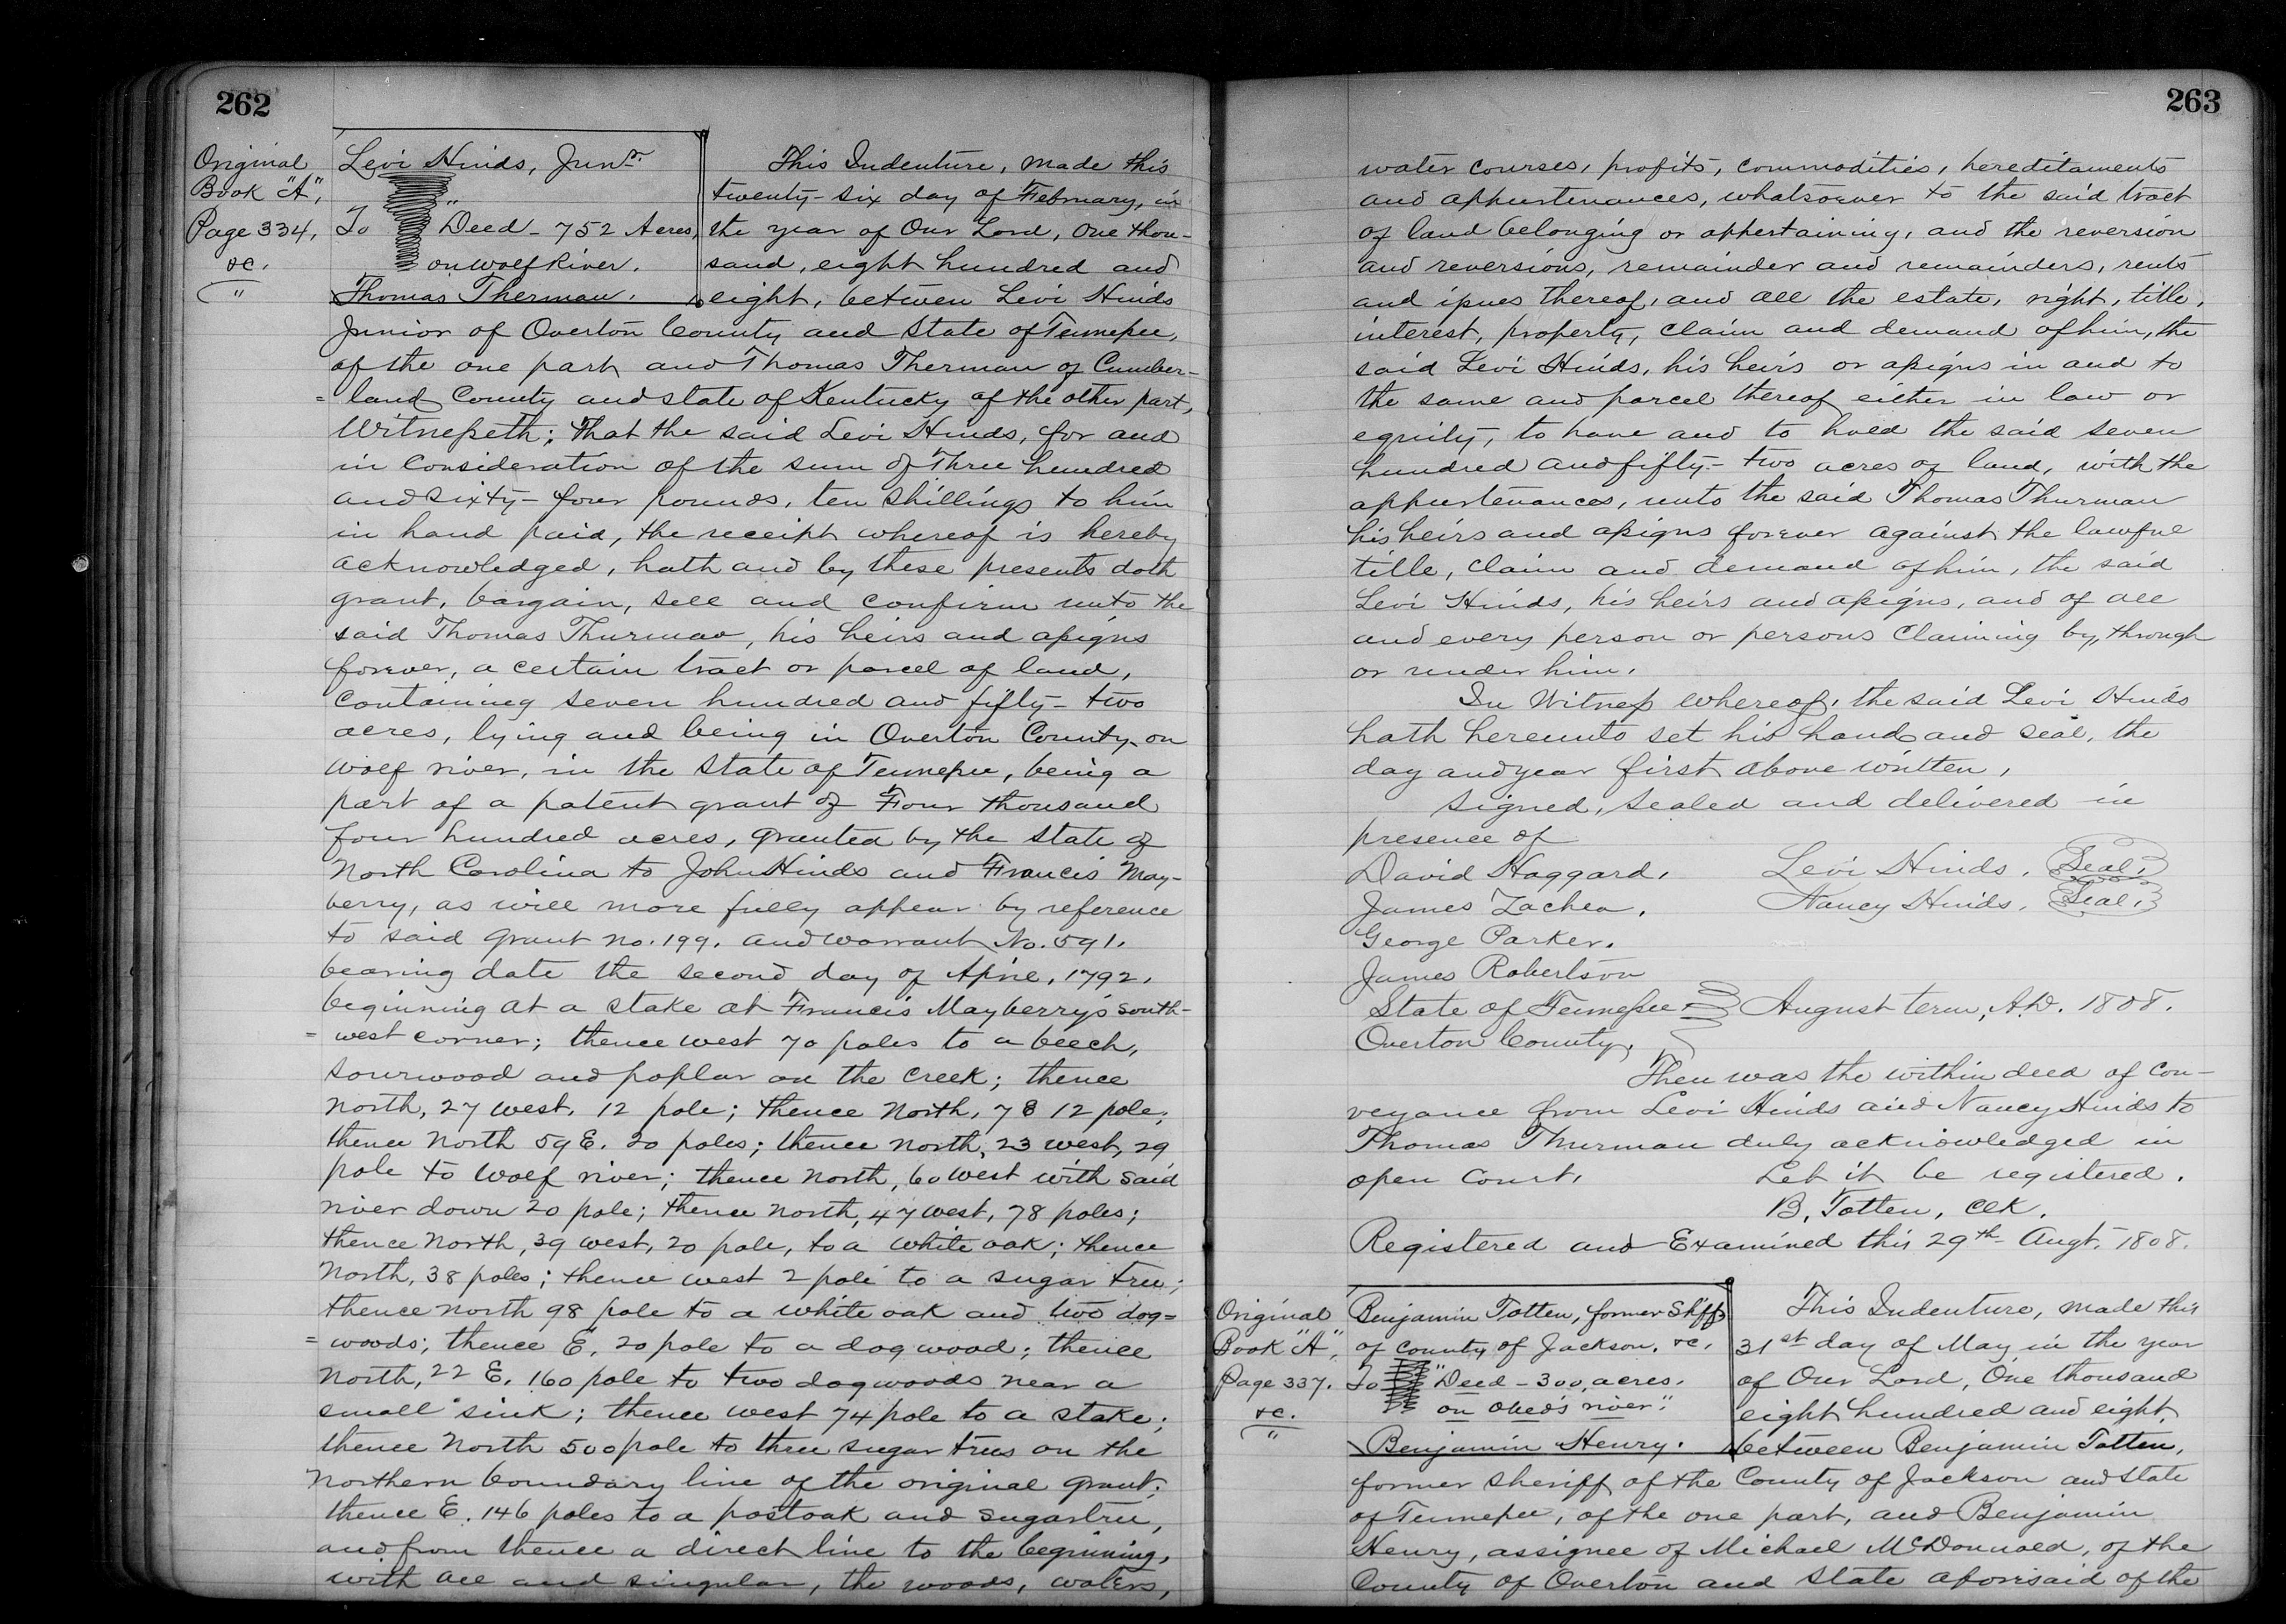 262
Original
Book "A",
Page 334,
&c.
"
Levi Hinds, Junr.
"
To Deed - 752 Acres,
on Wolf River.
Thomas Therman.
This Indenture, made this
twenty-six day of February, in
the year of Our Lord, One thou-
sand, eight hundred and
eight, between Levi Hinds
Junior of Overton County and State of Tennessee,
of the one part and Thomas Therman of Cumber-
= land County and state of Kentucky of the other part,
Witnesseth; that the said Levi Hinds, for and
in consideration of the sum of Three hundred
and sixty-four pounds, ten shillings to him
in hand paid, the receipt whereof is hereby
acknowledged, hath and by these presents doth
grant, bargain, sell and confirm unto the
said Thomas Thurman, his heirs and assigns
forever, a certain tract or parcel of land,
containing seven hundred and fifty-two
acres, lying and being in Overton County on
Wolf river, in the State of Tennessee, being a
part of a patent grant of Four thousand
four hundred acres, granted by the State of
North Carolina to John Hinds and Francis May-
berry, as will more fully appear by reference
to said grant No. 199. and warrant No. 591.
bearing date the second day of April, 1792.
beginning at a stake at Francis Mayberry's south-
= west corner; thence west 70 poles to a beech,
sourwood and poplar on the creek; thence
North, 27 west, 12 pole; thence North, 78 12 pole;
thence North 59 E. 20 poles; thence North, 23 west, 29
pole to Wolf river; thence North, 60 west with said
river down 20 pole; thence North, 47 west, 78 poles;
thence North, 39 west, 20 pole, to a white oak; thence
North, 38 poles; thence west 2 pole to a sugar tree;
thence North 98 pole to a white oak and two dog=
= woods; thence E. 20 pole to a dogwood; thence
North, 22 E. 160 pole to two dogwoods near a
small sink; thence west 74 pole to a stake;
thence North 500 pole to three sugar trees on the
Northern boundary line of the original grant;
thence E. 146 poles to a postoak and sugartree,
and from thence a direct line to the beginning,
with all and singular, the woods, waters,
263
water courses, profits, commodities, hereditaments
and appurtenances, whatsoever to the said tract
of land belonging or appertaining, and the reversion
and reversions, remainder and remainders, rents
and issues thereof, and all the estate, right, title,
interest, property, claim and demand of him, the
said Levi Hinds, his heirs or assigns in and to
the same and parcel thereof either in law or
equity, to have and to hold the said seven
hundred and fifty-two acres of land, with the
appurtenances, unto the said Thomas Thurman
his heirs and assigns forever against the lawful
title, claim and demand of him, the said
Levi Hinds, his heirs and assigns, and of all
and every person or persons claiming by, through
or under him.
In Witness whereof, the said Levi Hinds
hath hereunto set his hand and seal, the
day and year first above written,
Signed, sealed and delivered in
presence of
David Haggard, Levi Hinds. Seal.
James Zachea, Nancy Hinds. Seal.
George Parker.
James Robertson
State of Tennessee August term, A.D. 1808.
Overton County,
Then was the within deed of con-
veyance from Levi Hinds and Nancy Hinds to
Thomas Thurman duly acknowledged in
open Court. Let it be registered.
B. Totten, Clk.
Registered and Examined this 29th Augt. 1808.
Original
Book "A",
Page 337.
&c.
"
Benjamin Totten, former Shff
of County of Jackson, &c.
To "Deed - 300, acres.
on Obed's river."
Benjamin Henry.
This Indenture, made this
31st day of May in the year
of Our Lord, One thousand
eight hundred and eight,
between Benjamin Totten,
former sheriff of the County of Jackson and State
of Tennessee, of the one part, and Benjamin
Henry, assignee of Michael McDonnald, of the
County of Overton and State aforesaid of the